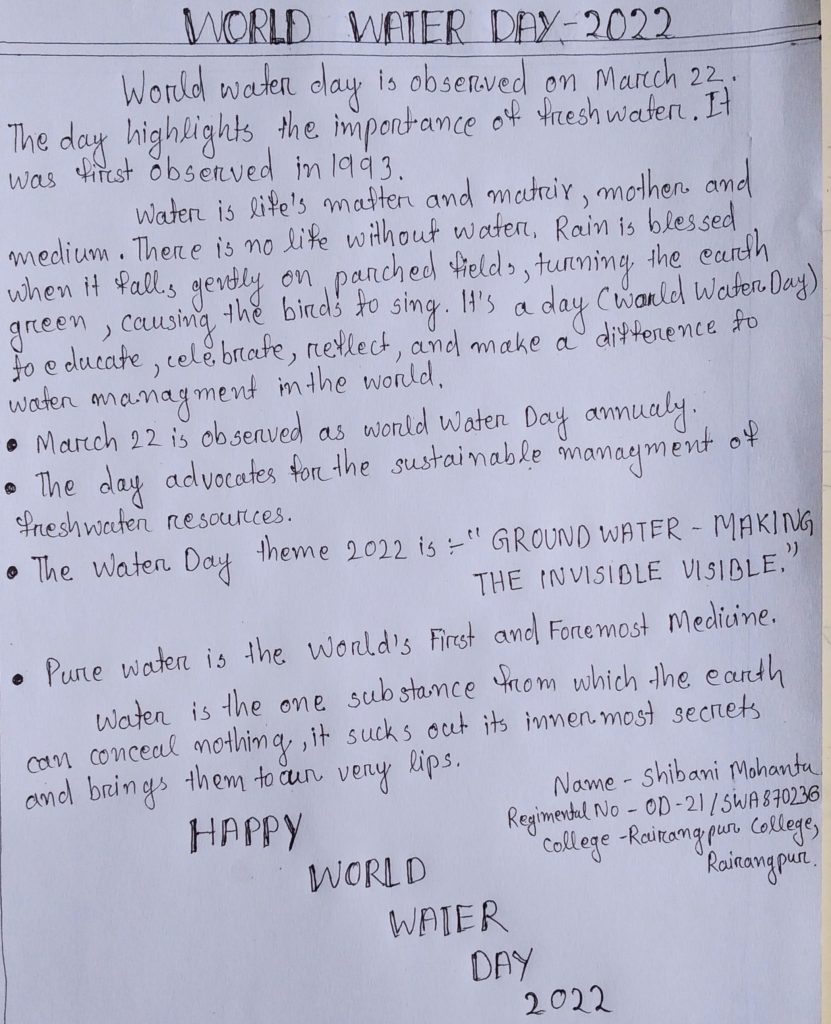 WORLD WATER DAY-2022
World water day is observed on March 22.
The day highlights the importance of freshwater. It
was first observed in 1993.
Water is life's matter and matrix, mother and
medium. There is no life without water. Rain is blessed
when it falls gently on parched fields, turning the earth
green, causing the birds to sing. It's a day (World Water Day)
to educate, celebrate, reflect, and make a difference to
water managment in the world.
• March 22 is observed as world Water Day annualy.
• The day advocates for the sustainable managment of
freshwater resources.
• The Water Day theme 2022 is :- "GROUND WATER - MAKING
THE INVISIBLE VISIBLE."
• Pure water is the World's First and Foremost Medicine.
Water is the one substance from which the earth
can conceal nothing, it sucks out its innermost secrets
and brings them to our very lips.
Name - Shibani Mohanta
Regimental No - OD-21/SWA870236
College - Rairangpur College,
Rairangpur.
HAPPY
WORLD
WATER
DAY
2022